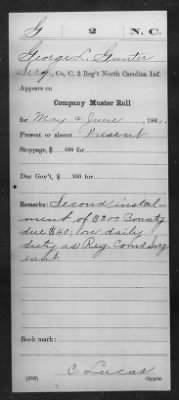 G 2 N. C.
George L. Gunter
Serg, Co. C, 2 Reg't North Carolina Inf.
Appears on
Company Muster Roll
for May & June, 186
Present or absent Present
Stoppage, $ 100 for
Due Gov't, $ 100 for
Remarks: Second instal
ment of $200 Bounty
due $40, on daily
duty as Reg. Com Serg
eant
Book mark:
C. Lucas
(358) Copyist.